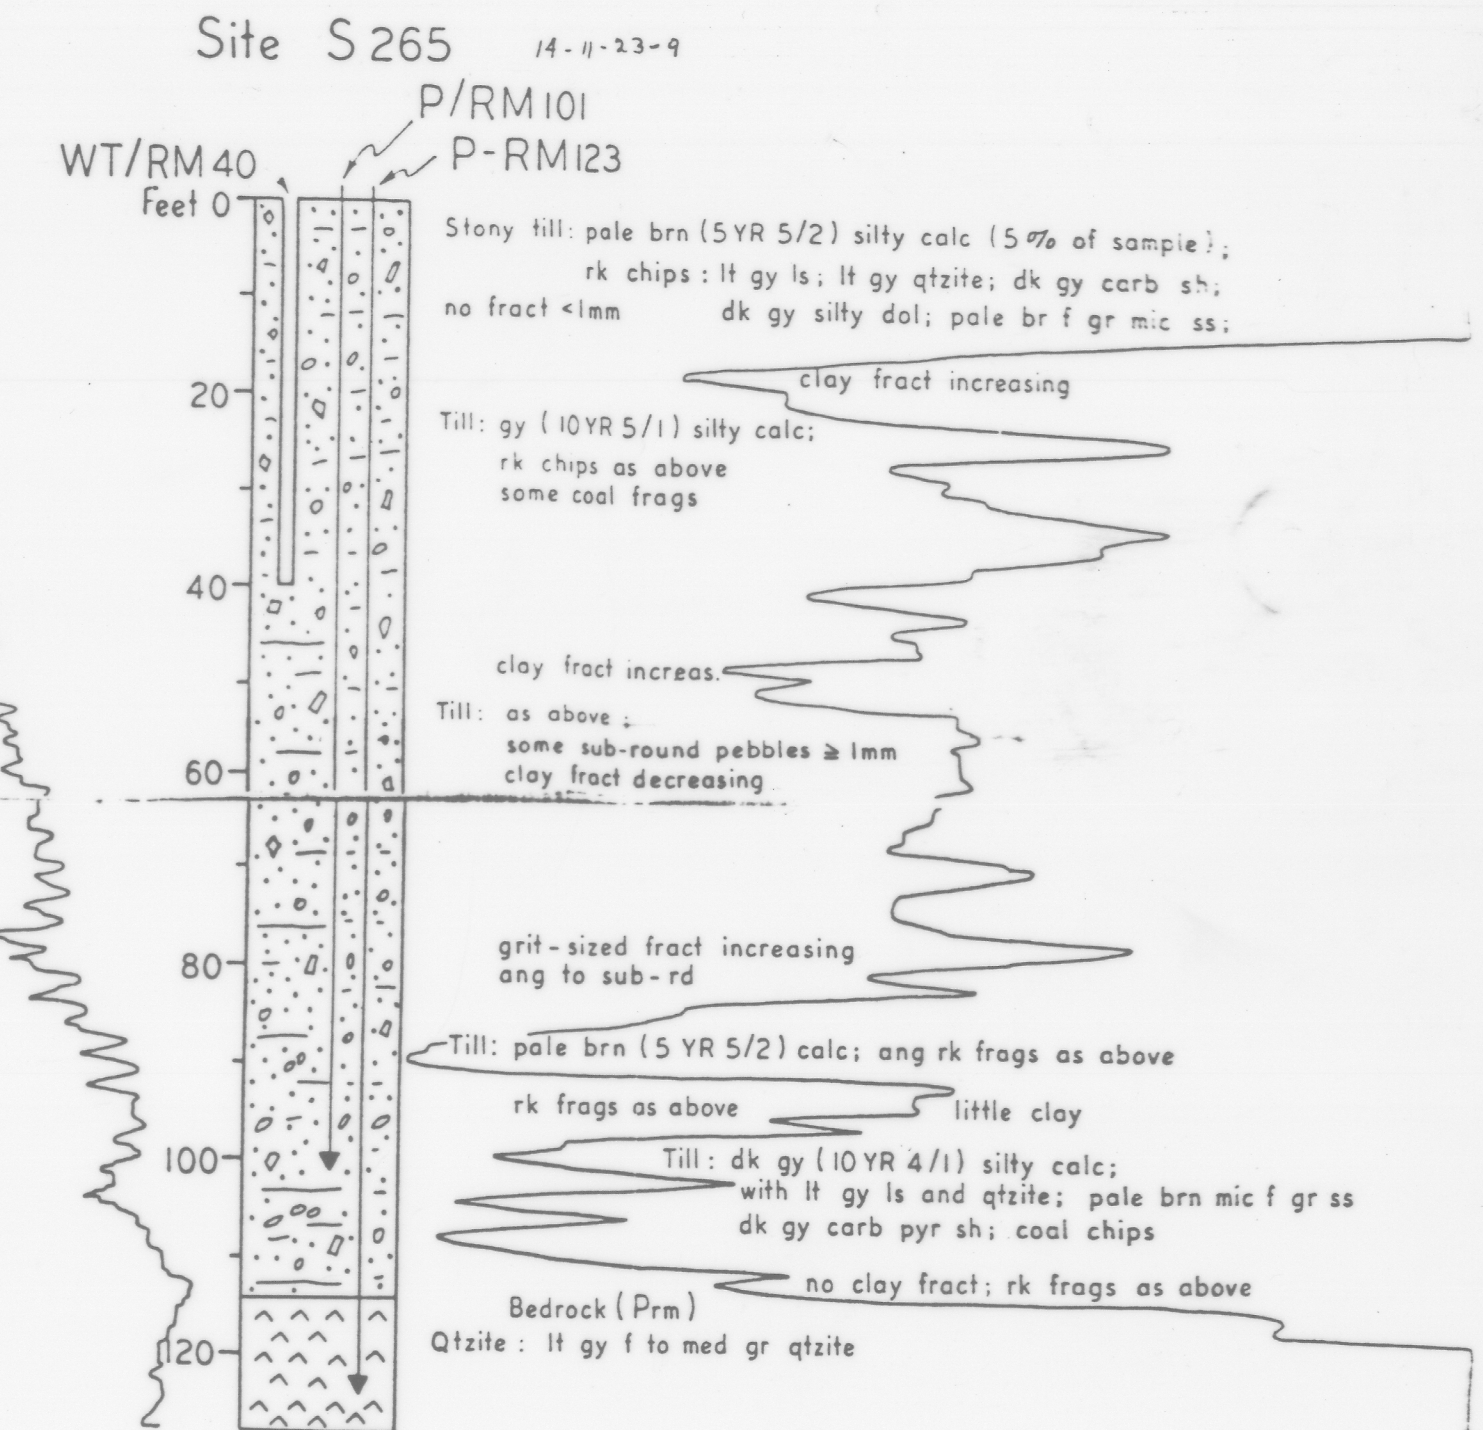 Site S 265 14-11-23-9
P/RM 101
WT/RM 40 P-RM 123
Feet 0
Stony till: pale brn (5 YR 5/2) silty calc (5 % of sample);
rk chips: lt gy ls; lt gy qtzite; dk gy carb sh;
no fract <1mm dk gy silty dol; pale br f gr mic ss;
20
clay fract increasing
Till: gy (10 YR 5/1) silty calc;
rk chips as above
some coal frags
40
clay fract increas.
Till: as above;
some sub-round pebbles ≥ 1mm
60
clay fract decreasing
80
grit-sized fract increasing
ang to sub-rd
Till: pale brn (5 YR 5/2) calc; ang rk frags as above
rk frags as above little clay
100
Till: dk gy (10 YR 4/1) silty calc;
with lt gy ls and qtzite; pale brn mic f gr ss
dk gy carb pyr sh; coal chips
no clay fract; rk frags as above
Bedrock (Prm)
120
Qtzite: lt gy f to med gr qtzite